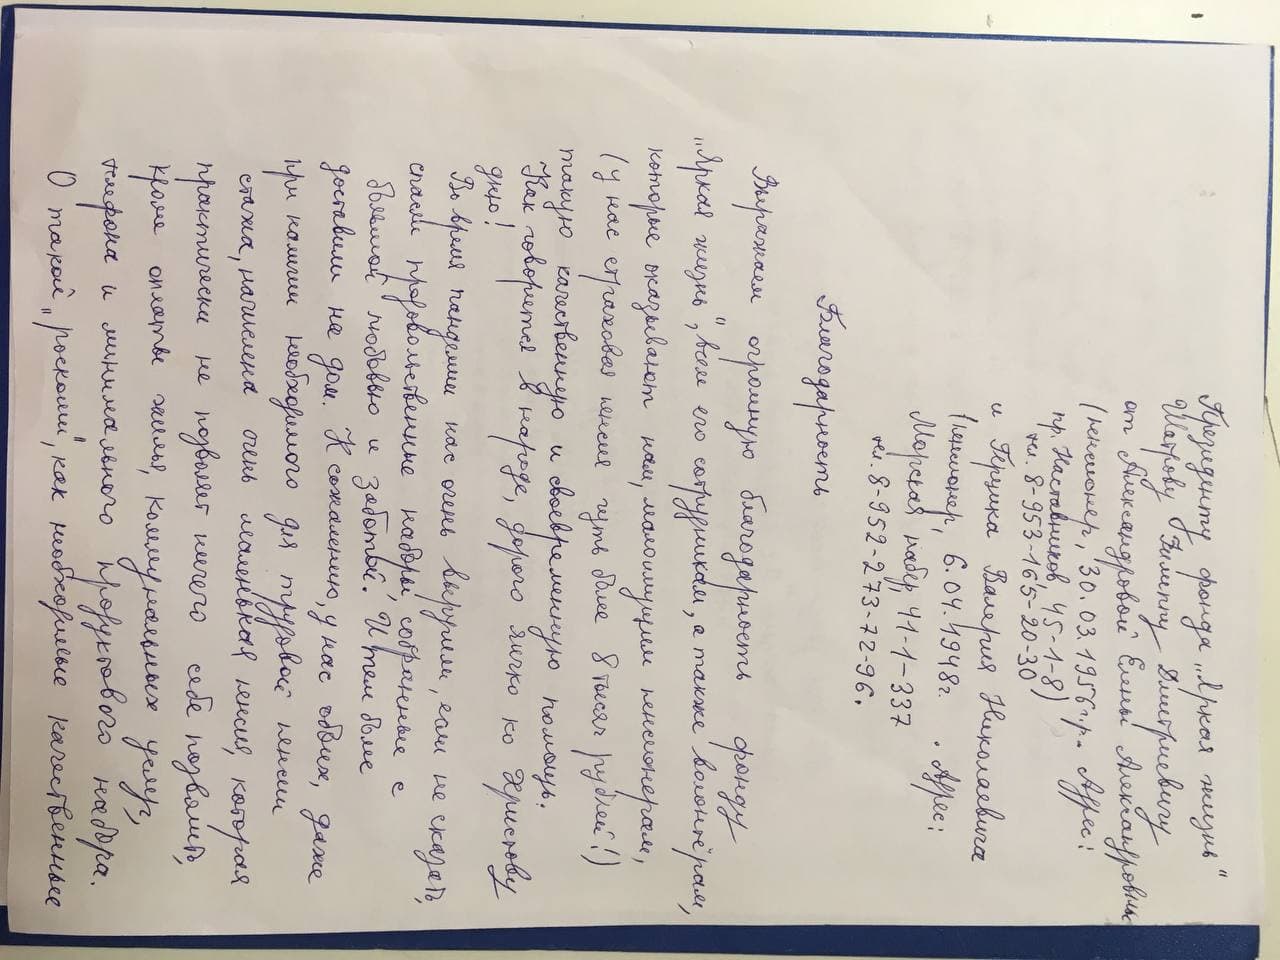 Президенту фонда „Яркая жизнь"
Шатрову Филиппу Дмитриевичу
от Александровой Елены Александровны
(пенсионер, 30.03.1956г.р. Адрес:
пр. Наставников 45-1-8)
тел. 8-953-165-20-30
и Герцика Валерия Николаевича
(пенсионер, 6.04.1948г. . Адрес:
Морская набер, 41-1-337
тел. 8-952-273-72-96.
Благодарность
Выражаем огромную благодарность фонду
„Яркая жизнь", всем его сотрудникам, а также волонтёрам,
которые оказывают нам, малоимущим пенсионерам,
(у нас страховая пенсия чуть более 8 тысяч рублей!)
такую качественную и своевременную помощь.
Как говорится в народе, дорого яичко ко Христову
дню!
Во время пандемии нас очень выручили, если не сказать,
спасли продовольственные наборы, собранные с
большой любовью и заботой. И тем более
доставили на дом. К сожалению, у нас обоих, даже
при наличии необходимого для трудовой пенсии
стажа, начислена очень маленькая пенсия, которая
практически не позволяет ничего себе позволить,
кроме оплаты жилья, коммунальных услуг,
телефона и минимального продуктового набора.
О такой „роскоши", как необходимые качественные